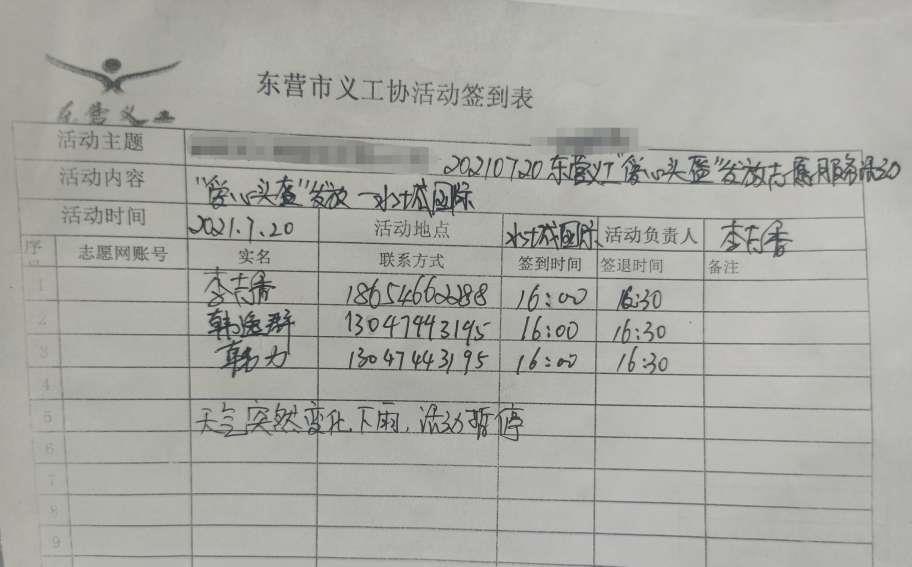 东营义工
东营市义工协活动签到表
活动主题 20210720东营义工"爱心头盔"发放志愿服务活动
活动内容 "爱心头盔"发放—水城国际
活动时间 2021.7.20 活动地点 水城国际 活动负责人 李志香
序号 志愿网账号 实名 联系方式 签到时间 签退时间 备注
1 李志香 18654662288 16:00 16:30
2 13047443195 16:00 16:30
3 韩力 13047443195 16:00 16:30
4
5 天气突然变化下雨,活动暂停
6
7
8
9